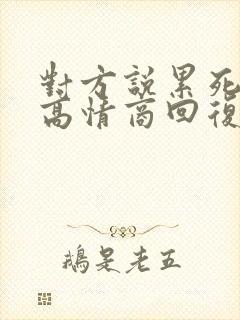 對方說累死
高情商回復
鵝是老五